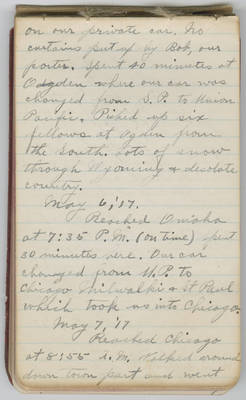 on our private car. No
curtains put up by Bob, our
porter. Spent 40 minutes at
Ogden where our car was
changed from S.P. to Union
Pacific. Picked up six
fellows at Ogden from
the South. Lots of snow
through Wyoming & desolate
country.
May 6, '17.
Reached Omaha
at 7:35 P.M. (on time) spent
30 minutes here. Our car
changed from U.P. to
Chicago Milwalki & St Paul
which took us into Chicago.
May 7, '17
Reached Chicago
at 8:55 A.M. Walked around
down town part and went